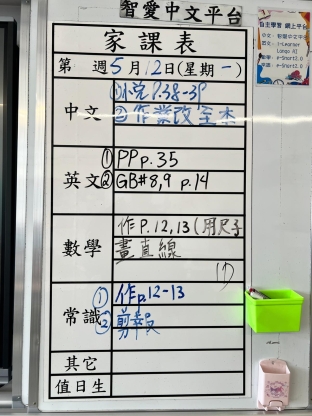 智愛中文平台
家課表
第 週5月12日(星期一)
中文
① P.38-39
②作業改至本
英文
①PP p.35
②GB#8,9 p.14
數學
作P.12,13(用尺子
畫直線
(1)
常識
①作p.12-13
②剪報
其它
值日生
自主學習 網上平台